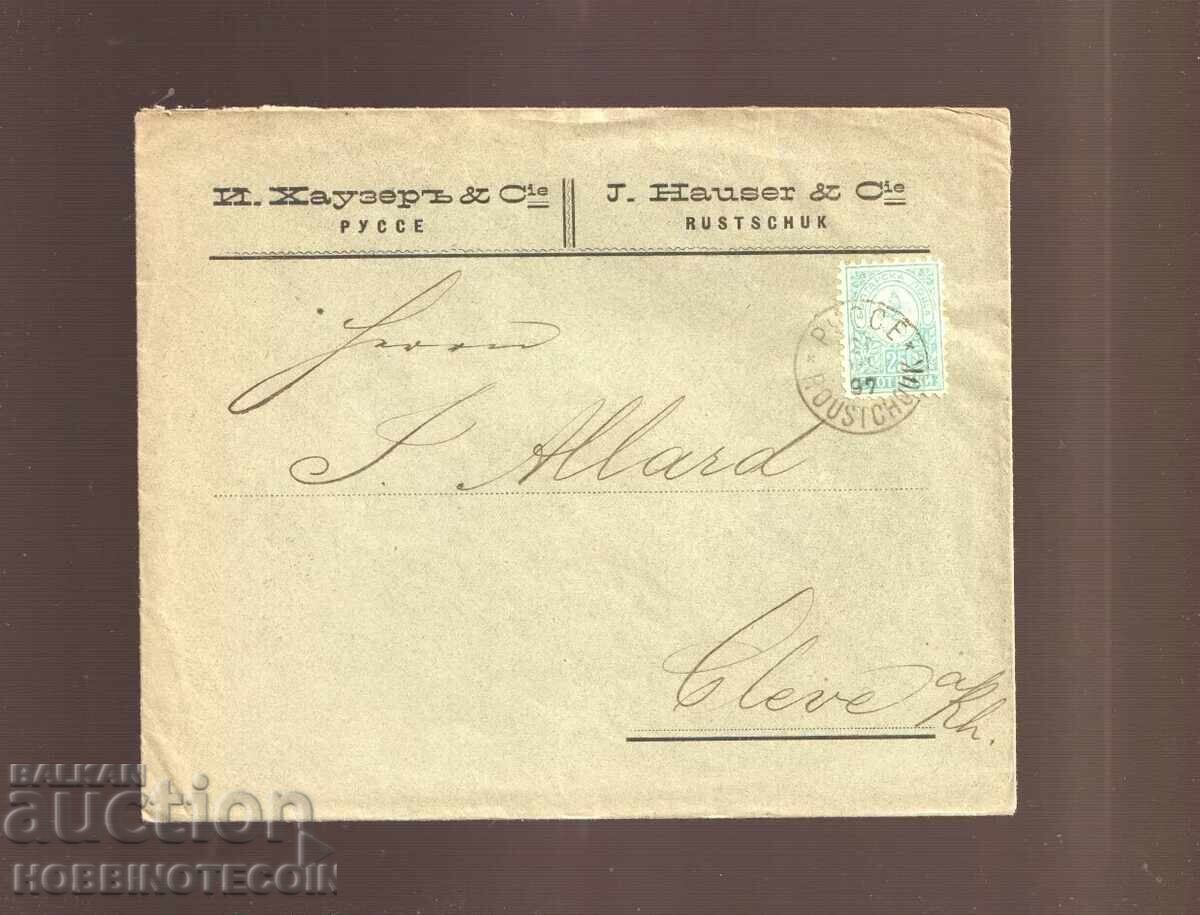 И. Хаузеръ & Cie
РУССЕ
J. Hauser & Cie
RUSTSCHUK
РУССЕ
97
ROUSTCHOUK
25
Herrn
J. Allard
Cleve a/Rh.
BALKAN
auction
HOBBINOTECOIN